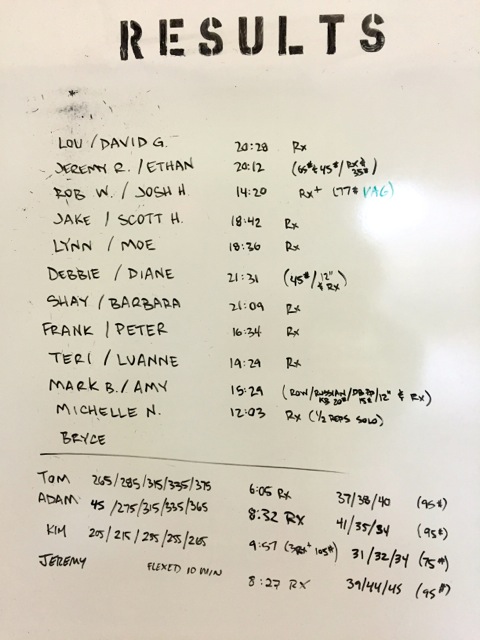 RESULTS
LOU / DAVID G. 20:28 Rx
JEREMY R. / ETHAN 20:12 (65# & 45# / Rx & 35#)
ROB W. / JOSH H 14:20 Rx+ (77# VAG)
JAKE / SCOTT H. 18:42 Rx
LYNN / MOE 18:36 Rx
DEBBIE / DIANE 21:31 (45# / 12" & Rx)
SHAY / BARBARA 21:09 Rx
FRANK / PETER 16:34 Rx
TERI / LUANNE 19:29 Rx
MARK B. / AMY 15:29 (ROW / RUSSIAN KB 20# / DB PP 15# / 12" & Rx)
MICHELLE N. 12:03 Rx (1/2 REPS SOLO)
BRYCE
TOM 265/285/315/335/375 6:05 Rx 37/38/40 (95#)
ADAM 45/275/315/335/365 8:32 Rx 41/35/34 (95#)
KIM 205/215/235/255/265 9:57 ( 105#) 31/32/34 (75#)
JEREMY FLEXED 10 MIN 8:27 Rx 39/44/45 (95#)